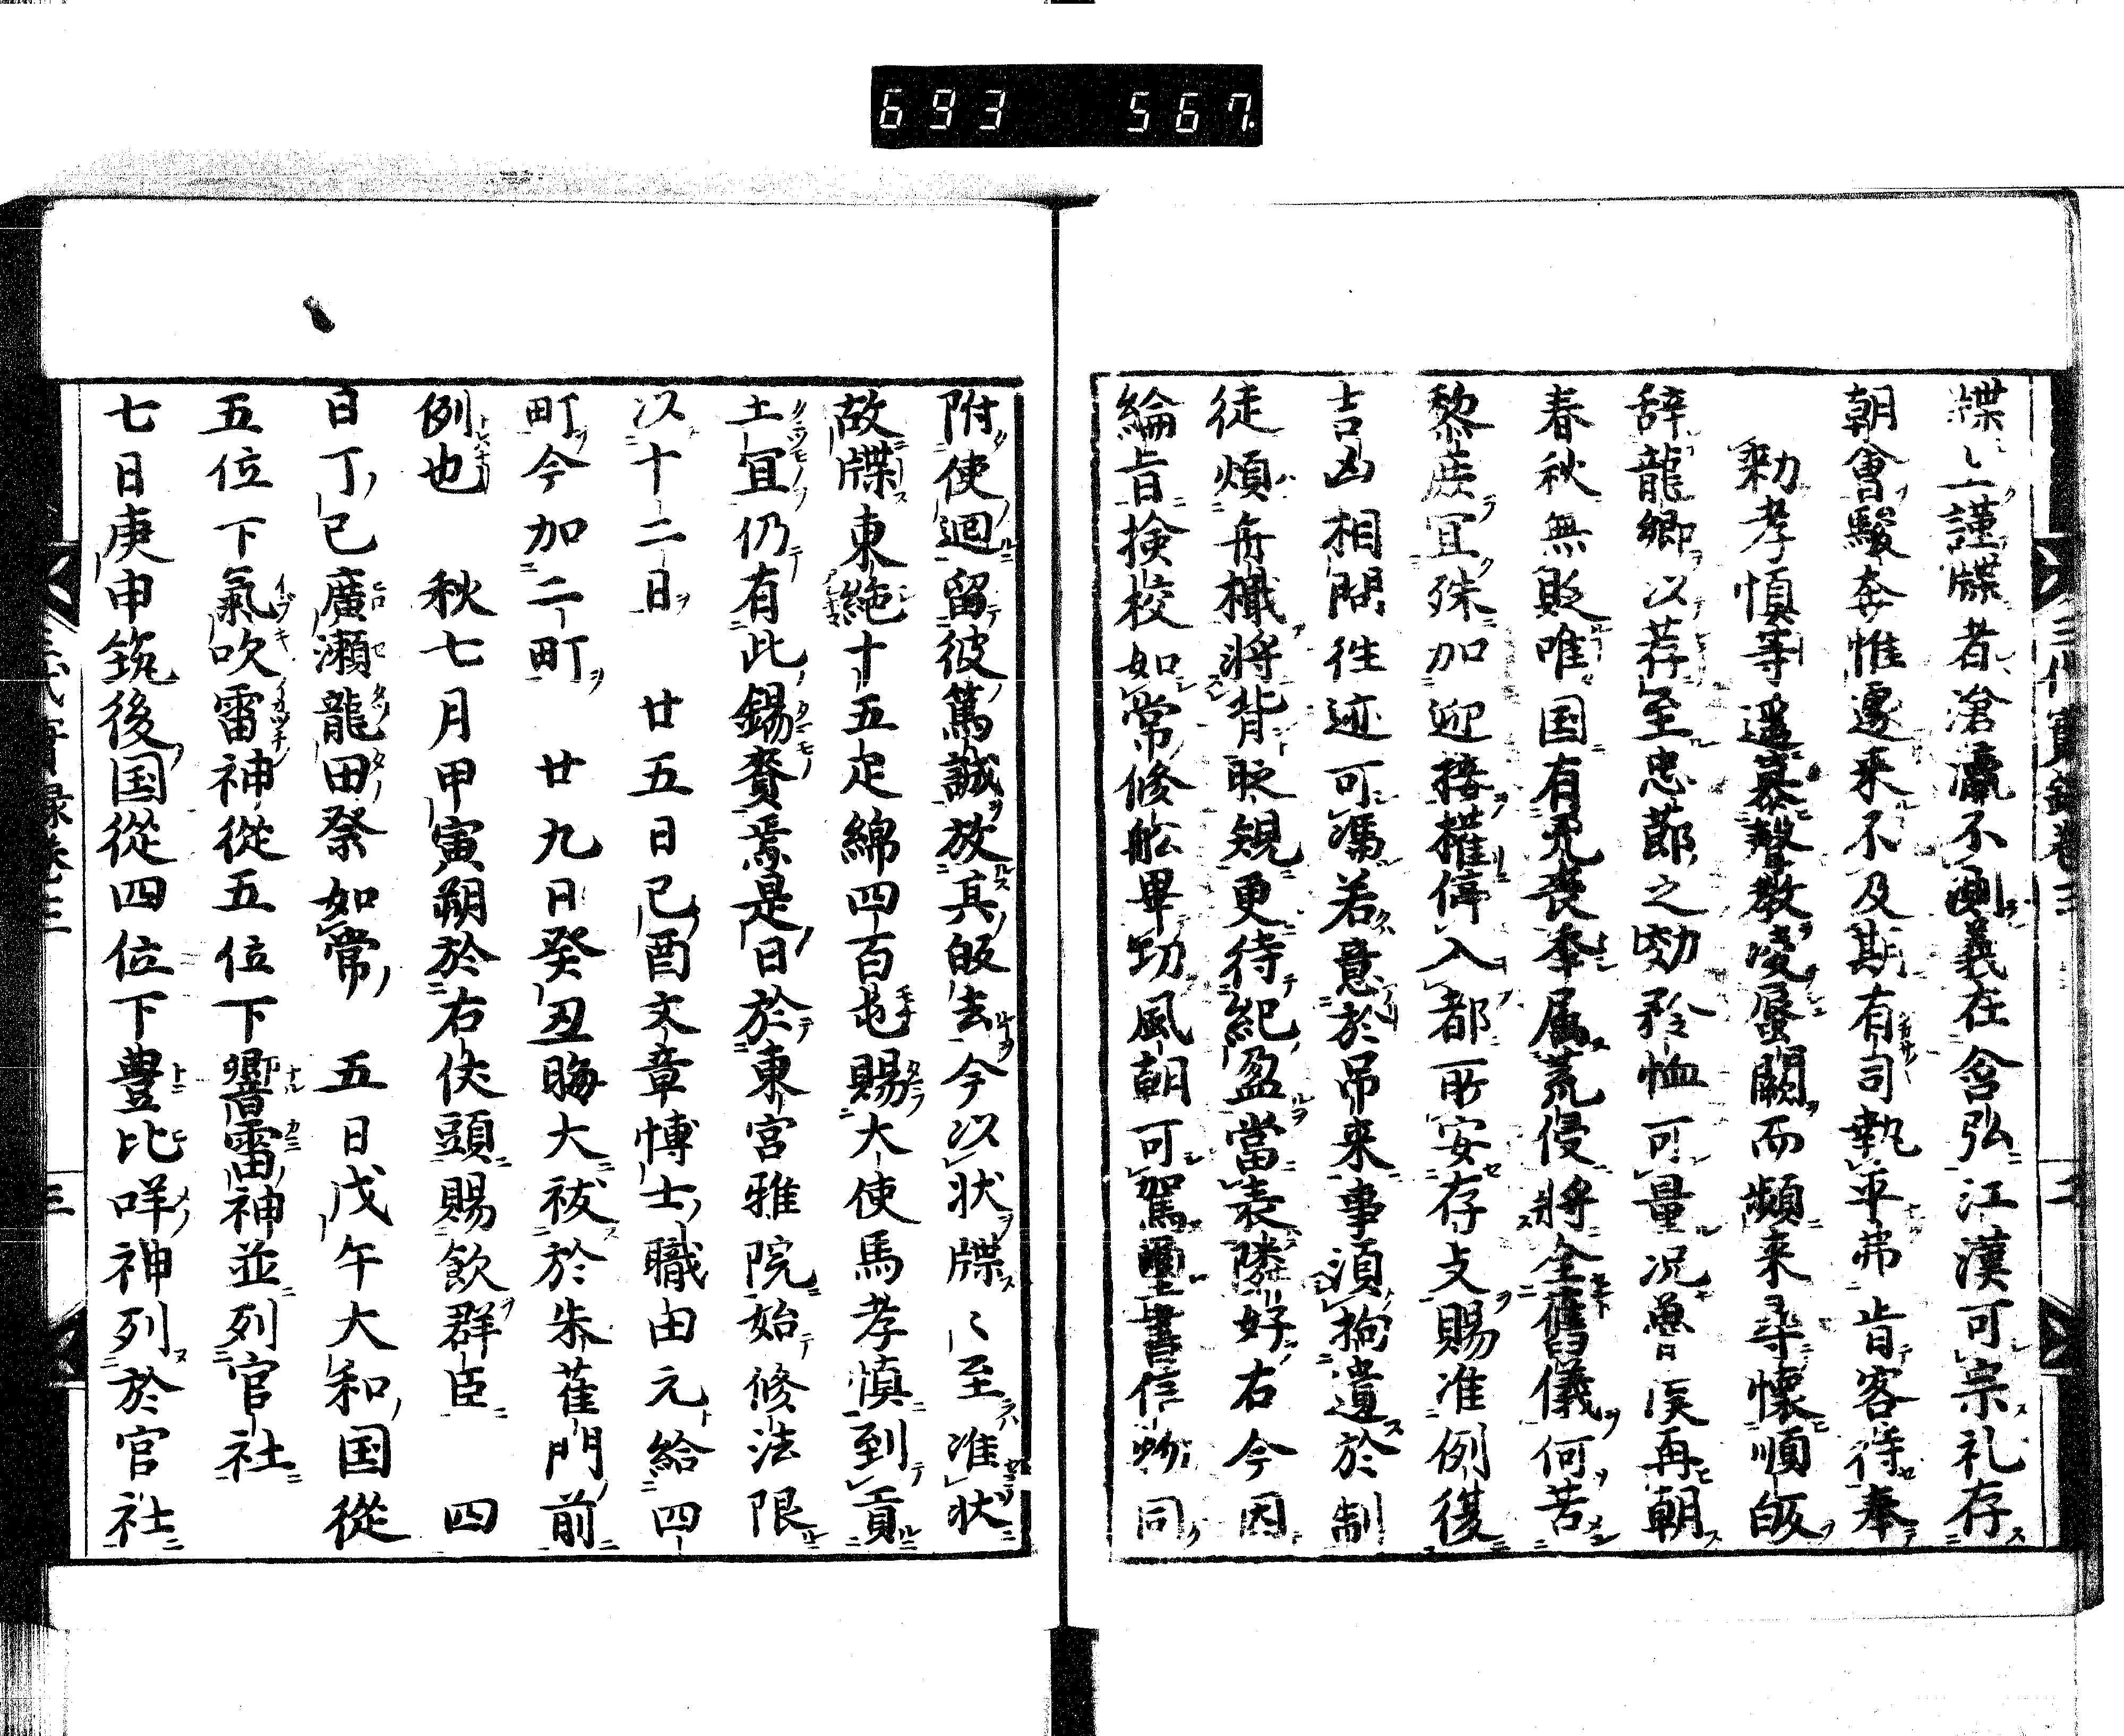 693 567.
三代實録卷三
二
牒上謹牒者滄瀛不測義在含弘江漢可宗礼存
朝會駿奔惟邊来不及期有司執平弗肯容待奉
勅孝慎等遥慕聲教凌蜃闕而頻来尋懐順皈
辞龍卿以荐至忠莭之効矜恤可量况魯侯再朝
春秋無貶唯国有凢喪季属荒侵将全舊儀何苦
黎庶冝殊加迎接権停入都所安存支賜准例復
吉凶相問徃迹可馮若意於吊来事湏拘遣於制
徒煩舟檝将背貶規更待紀盈當表隣好右今因
綸旨撿挍如常修舩畢功風朝可駕璽書信物同
附使廻留彼篤誠放其皈去今以状牒〻至准状
故牒東絁十五疋綿四百屯賜大使馬孝慎到貢
土冝仍有此錫賚焉是日於東宮雅院始修法限
以十二日 廿五日己酉文章博士職田元給四
町今加二町 廿九日癸丑晦大祓於朱雀門前
例也 秋七月甲寅朔於右仗頭賜飲群臣 四
日丁巳廣瀬龍田祭如常 五日戊午大和国從
五位下氣吹雷神從五位下響雷神並列官社
七日庚申筑後国從四位下豊比咩神列於官社
三代實録卷三
三